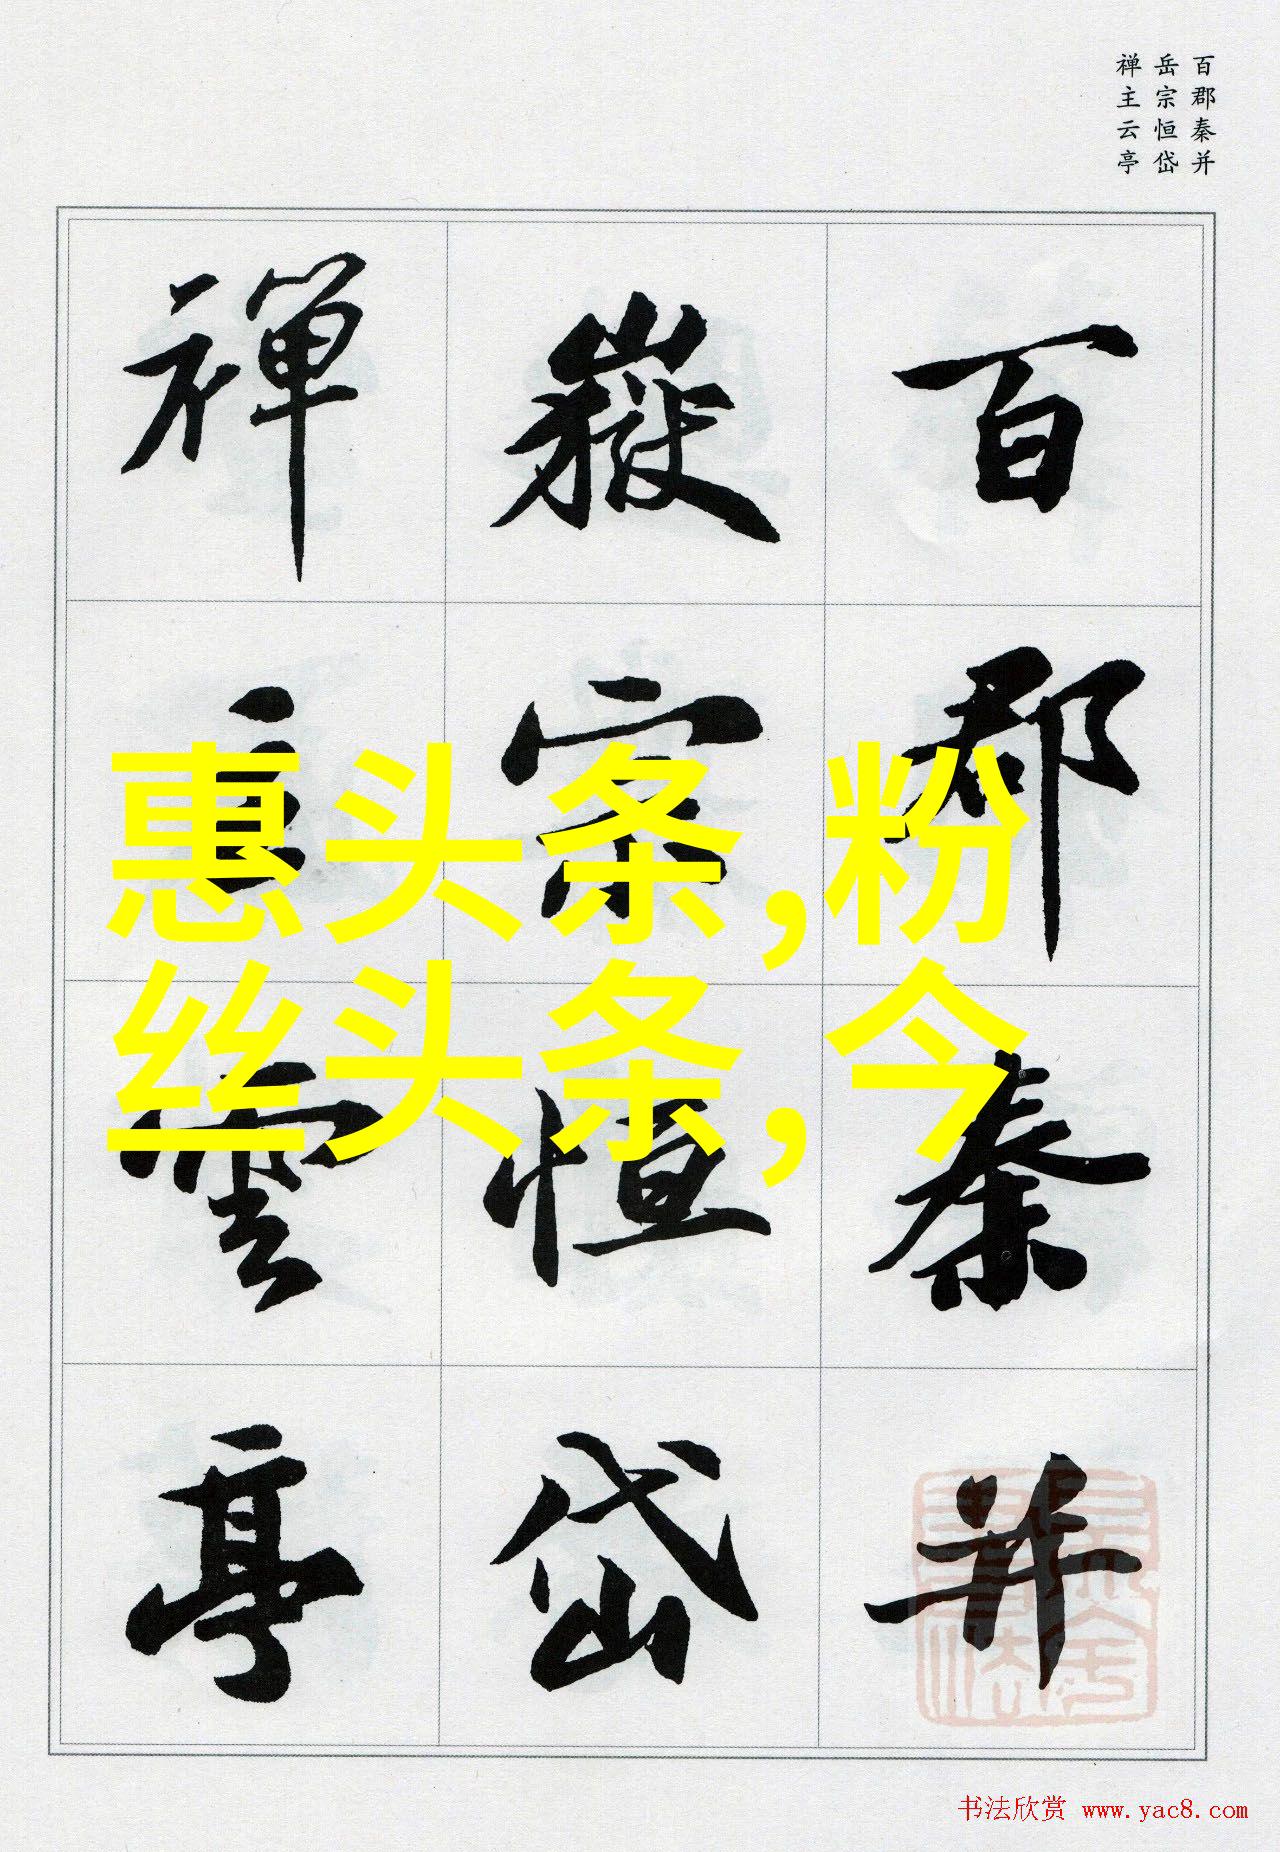 百郡秦并
岳宗恒岱
禅主云亭
百郡秦并
嶽宗恒岱
禅主雲亭
惠头条,粉
丝头条,今
书法欣赏 www.yac8.com